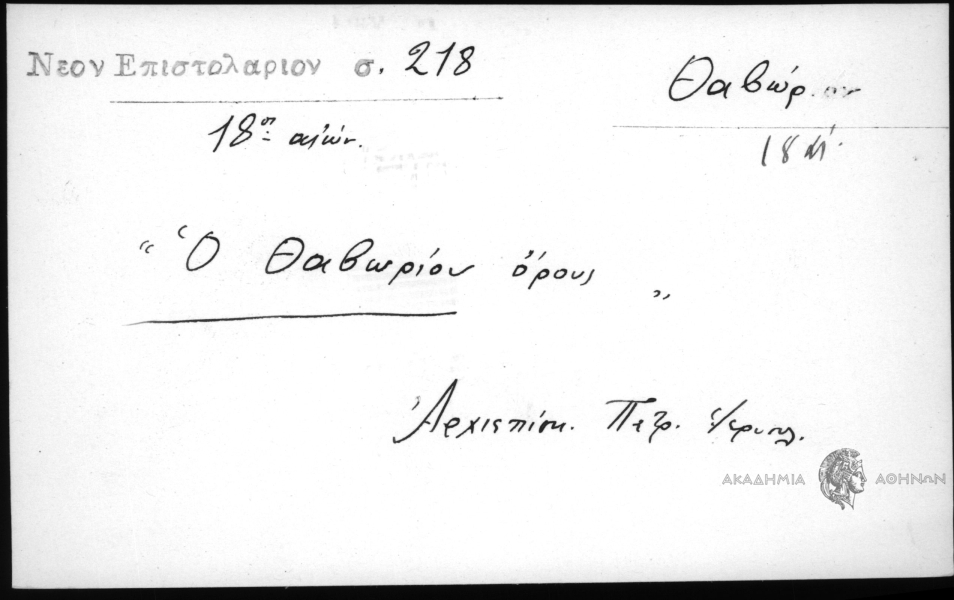 Νεον Επιστολαριον σ. 218
Θαβώρ
18ος αἰών.
18
“ Ὁ Θαβωρίου ὄρους „
Ἀρχιεπίσκ. Πέτρ.
ΑΚΑΔΗΜΙΑ ΑΘΗΝΩΝ